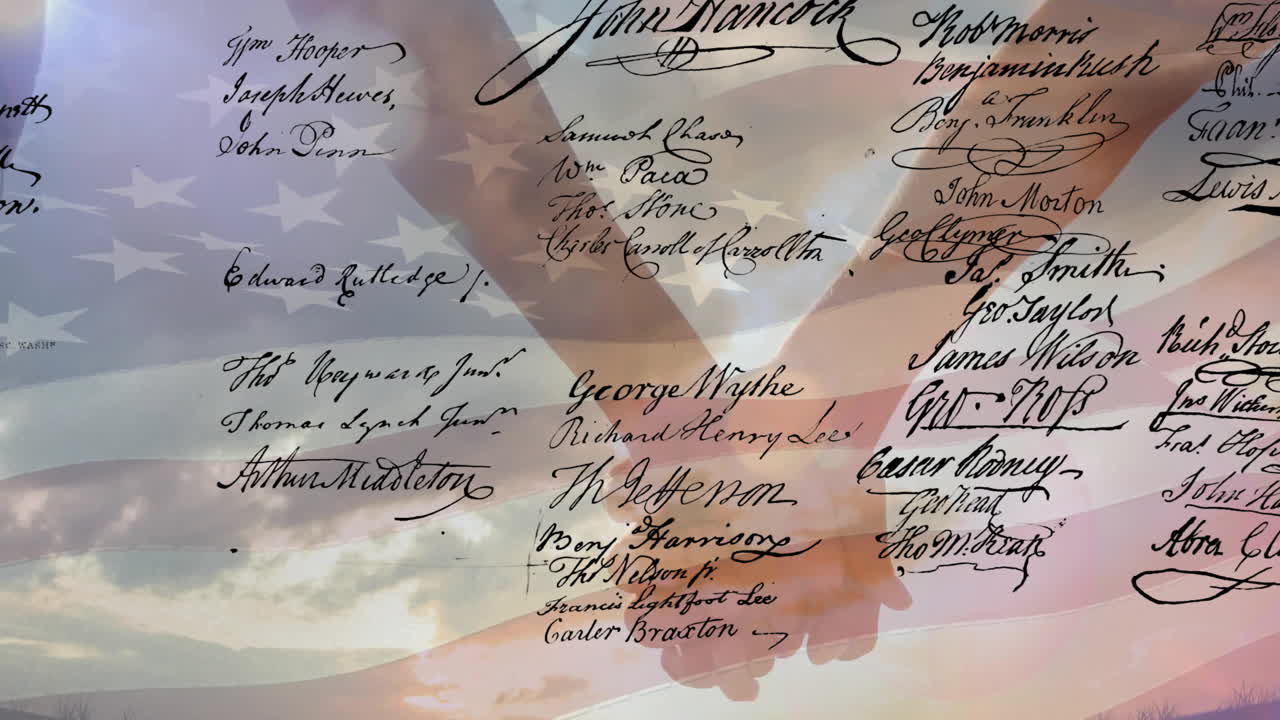 nett
on.
SC WASHP
Wm Hooper
Joseph Hewes,
John Penn
Edward Rutledge /.
Thos Heyward Junr.
Thomas Lynch Junr.
Arthur Middleton
John Hancock
Samuel Chase
Wm. Paca
Thos. Stone
Charles Carroll of Carrollton
George Wythe
Richard Henry Lee
Th Jefferson
Benj Harrison
Thos Nelson jr.
Francis Lightfoot Lee
Carter Braxton
Robt Morris
Benjamin Rush
Benja. Franklin
John Morton
Geo Clymer
Jas. Smith.
Geo. Taylor
James Wilson
Geo. Ross
Caesar Rodney
Geo Read
Tho M:Kean
Wm
Phil.
Fran
Lewis
Richd. Stoc
Jno Wither
Fras. Hop
John H
Abra Cl